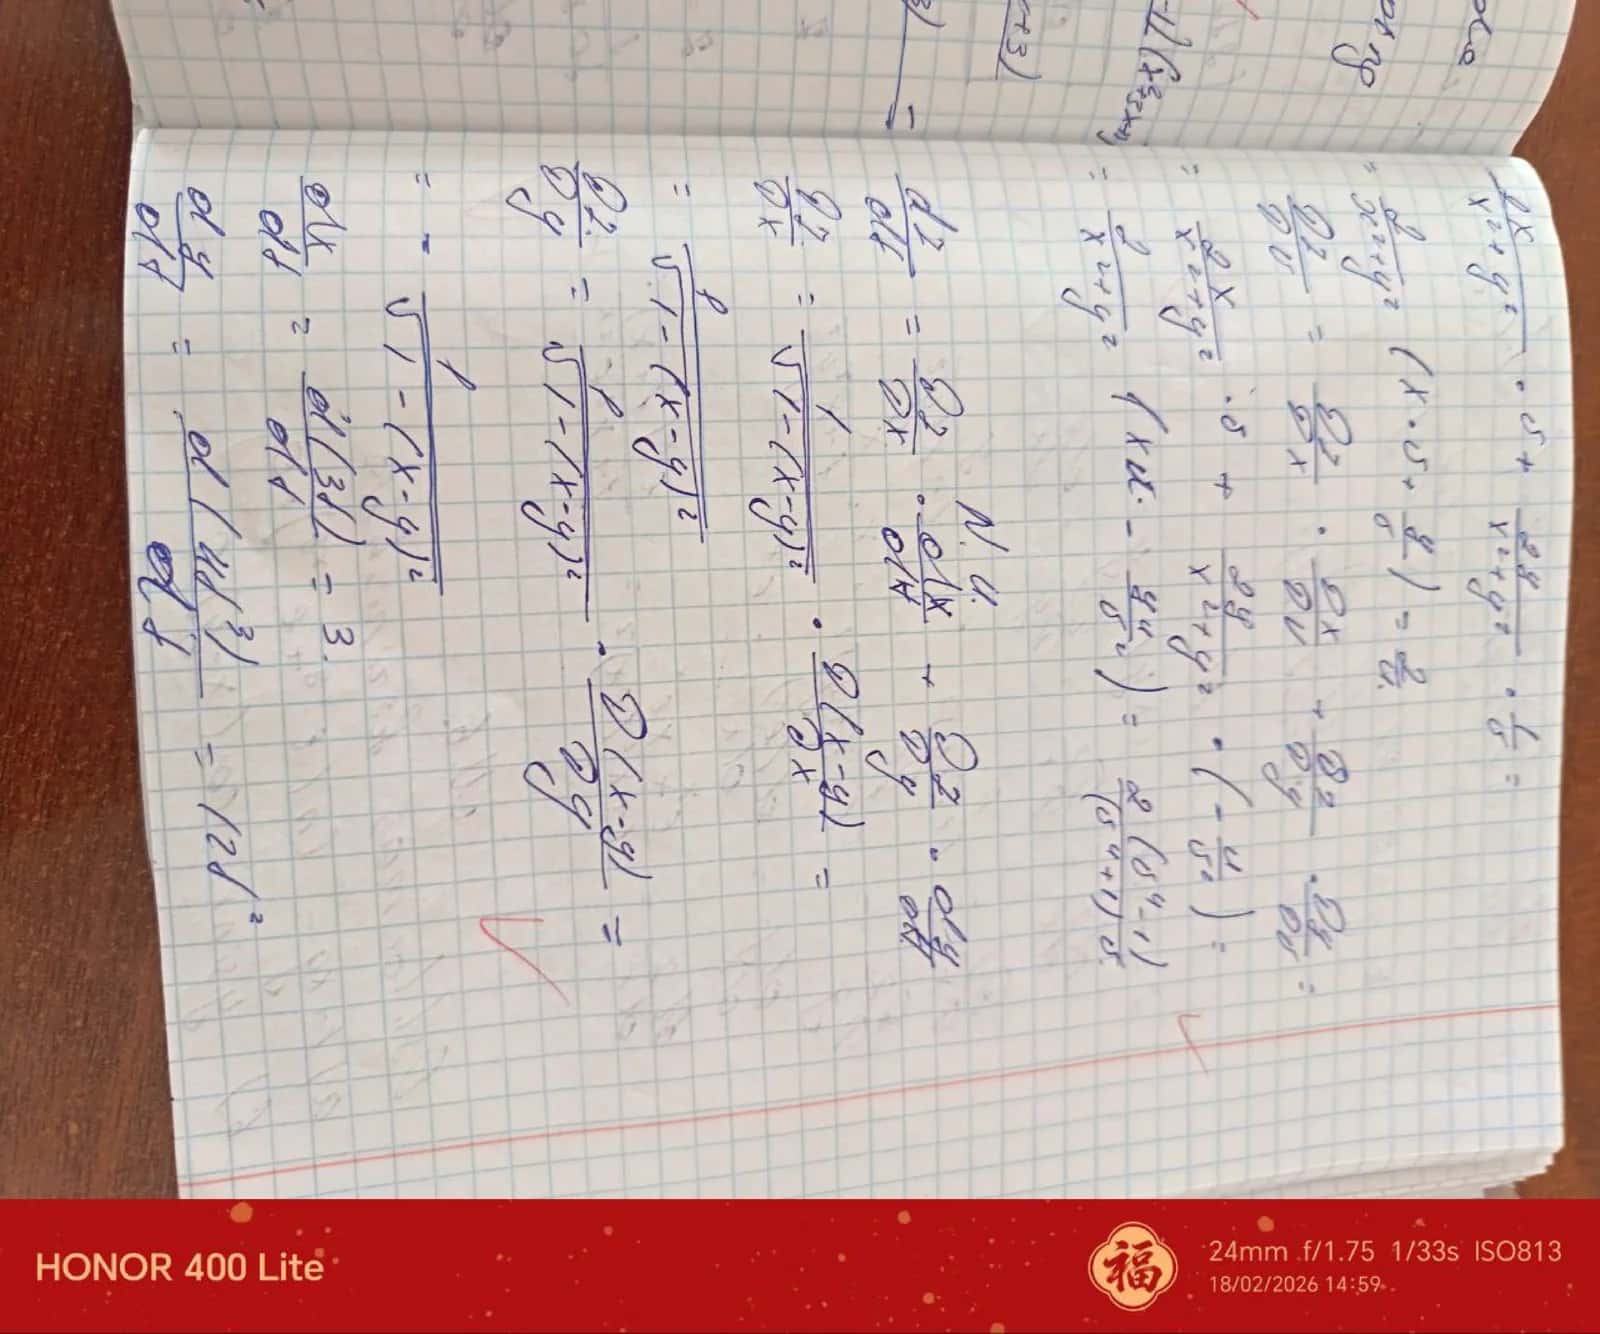 2x/(x²+y²) · v + 2y/(x²+y²) · 1/v =
= 2/(x²+y²) (x·v + y/v) = 2/u.
∂z/∂v = ∂z/∂x · ∂x/∂v + ∂z/∂y · ∂y/∂v =
= 2x/(x²+y²) · u + 2y/(x²+y²) · (- u/v²) =
= 2/(x²+y²) (xu - yu/v²) = 2(v⁴-1)/(v⁴+1)v
N. 4.
dz/dt = ∂z/∂x · dx/dt + ∂z/∂y · dy/dt
∂z/∂x = 1/√1-(x-y)² · ∂(x-y)/∂x =
= 1/√1-(x-y)²
∂z/∂y = 1/√1-(x-y)² · ∂(x-y)/∂y =
= - 1/√1-(x-y)²
dx/dt = d(3t)/dt = 3.
dy/dt = d(4t³)/dt = 12t²
HONOR 400 Lite
福
24mm f/1.75 1/33s ISO813
18/02/2026 14:59